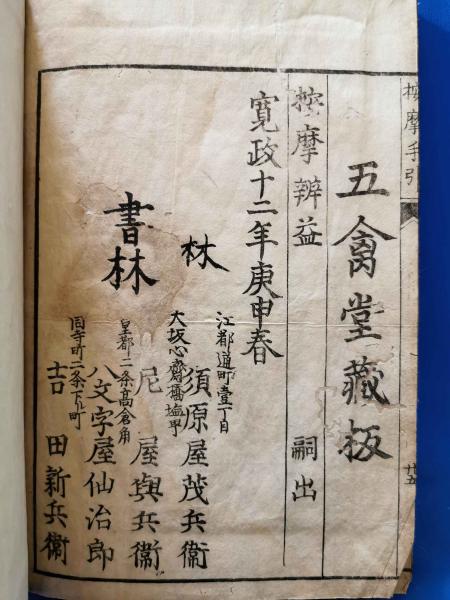 按摩手引
廿五
五禽堂藏板
按摩辨益 嗣出
寛政十二年庚申春
林
書林
江都通町壹丁目
須原屋茂兵衞
大坂心齋橋塩町
尼屋與兵衞
皇都二条高倉角
八文字屋仙治郎
同寺町二条下ル町
吉田新兵衞